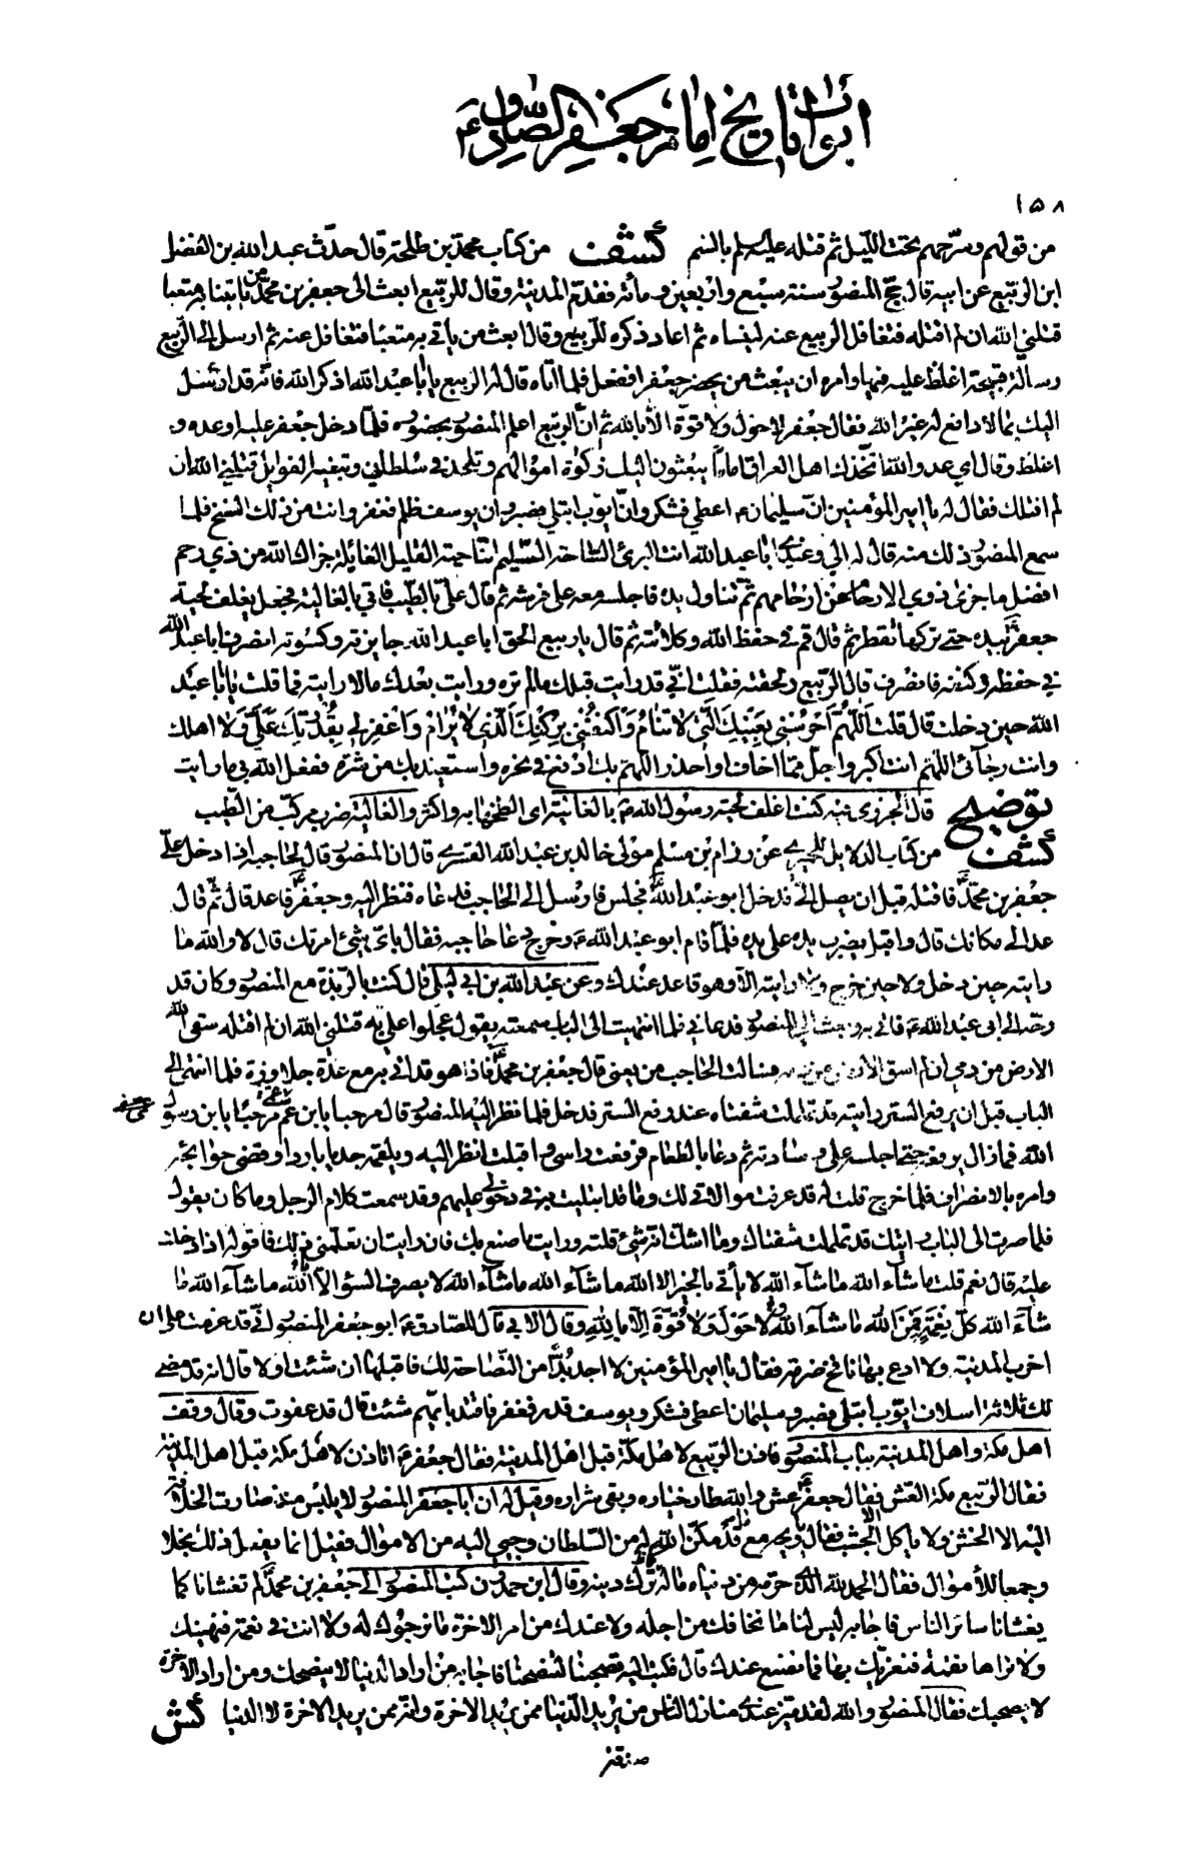 ابواب تاريخ امام جعفر الصادق ع
١٥٨
من قولهم وسرّحهم تحت الليل ثم قتله عليه السلم بالسم كشف من كتاب محمد بن طلحة قال حدّث عبد الله بن الفضل
ابن الربيع عن ابيه قال حجّ المنصور سنة سبع واربعين ومأة فقدم المدينة وقال للربيع ابعث الى جعفر بن محمد من ياتينا به متعبا
قتلني الله ان لم اقتله فتغافل الربيع عنه لينساه ثم اعاد ذكره للربيع وقال ابعث من ياتي به متعبا فتغافل عنه ثم ارسل الى الربيع
رسالة قبيحة اغلظ عليه فيها وامره ان يبعث من يحضر جعفرا ففعل فلما اتاه قال له الربيع يا ابا عبد الله اذكر الله فانه قد ارسل
اليك بما لا دافع له غير الله فقال جعفر لا حول ولا قوة الا بالله ثم ان الربيع اعلم المنصور بحضوره فلما دخل جعفر عليه اوعده و
اغلظ وقال اي عدو الله اتخذك اهل العراق اماما يبعثون اليك زكوة اموالهم وتلحد في سلطاني وتبغيه الغوائل قتلني الله ان
لم اقتلك فقال له يا امير المؤمنين ان سليمان ع اعطي فشكر وان ايوب ابتلي فصبر وان يوسف ظلم فغفر وانت من ذلك السنخ فلما
سمع المنصور ذلك منه قال له الي وعندي ابا عبد الله انت البرئ الساحة السليم الناحية القليل الغائلة جزاك الله من ذي رحم
افضل ما جزى ذوي الارحام عن ارحامهم ثم تناول يده فاجلسه معه على فرشه ثم قال علي بالطيب فاتي بالغالية فجعل يغلف لحية
جعفر ع بيده حتى تركها تقطر ثم قال قم في حفظ الله وكلائته ثم قال يا ربيع الحق ابا عبد الله جايزته وكسوته انصرف ابا عبد الله
في حفظه وكنفه فانصرف قال الربيع ولحقته فقلت اني قد رايت قبلك ما لم تره ورايت بعدك ما لا رايته فما قلت يا ابا عبد
الله حين دخلت قال قلت اللهم احرسني بعينك التي لا تنام واكنفني بركنك الذي لا يرام واغفر لي بقدرتك علي ولا اهلك
وانت رجائي اللهم انت اكبر واجل مما اخاف واحذر اللهم بك ادفع في نحره واستعيذ بك من شره ففعل الله بي ما رايت
توضيح قال الجزري فيه كنت اغلف لحية رسول الله ص بالغالية اي الطخها به واكثر والغالية ضرب مركب من الطيب
كشف من كتاب الدلايل للحميري عن رزام بن مسلم مولى خالد بن عبد الله القسري قال ان المنصور قال لحاجبه اذا دخل علي
جعفر بن محمد ع فاقتله قبل ان يصل الي فدخل ابو عبد الله ع فجلس فارسل الى الحاجب فدعاه فنظر اليه وجعفر ع قاعد قال ثم قال
عد الى مكانك قال واقبل يضرب يده على يده فلما قام ابو عبد الله ع وخرج دعا حاجبه فقال باي شئ امرتك قال لا والله ما
رايته حين دخل ولا حين خرج ولا رايته الا وهو قاعد عندك وعن عبد الله بن ابي ليلى قال كنت بالربذة مع المنصور وكان قد
وجه الى ابي عبد الله ع فاتي به وبعث الي المنصور فدعاني فلما انتهيت الى الباب سمعته يقول عجلوا علي به قتلني الله ان لم اقتله سقى الله
الارض من دمي ان لم اسق الارض من دمه فسالت الحاجب من يعني قال جعفر بن محمد ع فاذا هو قد اتي به مع عدة جلاوزة فلما انتهى الى
الباب قبل ان يرفع الستر رايته قد تململت شفتاه عند رفع الستر فدخل فلما نظر اليه المنصور قال مرحبا يابن عم مرحبا يابن رسول
الله فما زال يرفعه حتى اجلسه على وسادته ثم دعا بالطعام فرفعت راسي واقبلت انظر اليه ويلقمه جديا باردا وقضى حوائجه
وامره بالانصراف فلما خرج قلت له قد عرفت موالاتي لك وما قد ابتليت به في دخولي عليهم وقد سمعت كلام الرجل وما كان يقول
فلما صرت الى الباب رايتك قد تململت شفتاك وما اشك انه شئ قلته ورايت ما صنع بك فان رايت ان تعلمني ذلك فاقوله اذا دخلت
عليه قال نعم قلت ما شاء الله ما شاء الله لا يأتي بالخير الا الله ما شاء الله ما شاء الله لا يصرف السوء الا الله ما شاء الله ما
شاء الله كل نعمة فمن الله ما شاء الله لا حول ولا قوة الا بالله وقال الابي قال للصادق ع ابو جعفر المنصور اني قد عزمت على ان
اخرب المدينة ولا ادع بها نافخ ضرمة فقال يا امير المؤمنين لا اجد بدا من النصاحة لك فاقبلها ان شئت اولا قال انه قد مضى
لك ثلاثة اسلاف ايوب ابتلي فصبر وسليمان اعطي فشكر ويوسف قدر فغفر فاقتد بايهم شئت قال قد عفوت وقال وقف
اهل مكة واهل المدينة بباب المنصور فاذن الربيع لاهل مكة قبل اهل المدينة فقال جعفر ع اتاذن لاهل مكة قبل اهل المدينة
فقال الربيع مكة العش فقال جعفر ع عش والله طار خياره وبقي شراره وقيل له ان ابا جعفر المنصور لا يلبس منذ صارت الخلافة
اليه الا الخشن ولا ياكل الا الجشب فقال يا ويحه مع ما قد مكن الله له من السلطان وجبي اليه من الاموال فقيل انما يفعل ذلك بخلا
وجمعا للاموال فقال الحمد لله الذي حرمه من دنياه ماله ترك دينه وقال ابن حمدون كتب المنصور الى جعفر بن محمد ع لم لا تغشانا كما
يغشانا سائر الناس فاجابه ليس لنا ما نخافك من اجله ولا عندك من امر الاخرة ما نرجوك له ولا انت في نعمة فنهنيك
ولا نراها نقمة فنعزيك بها فما نصنع عندك قال فكتب اليه تصحبنا لتنصحنا فاجابه من اراد الدنيا لا ينصحك ومن اراد الاخرة
لا يصحبك فقال المنصور والله لقد ميز عندي منازل الناس من يريد الدنيا ممن يريد الاخرة وانه ممن يريد الاخرة لا الدنيا كش